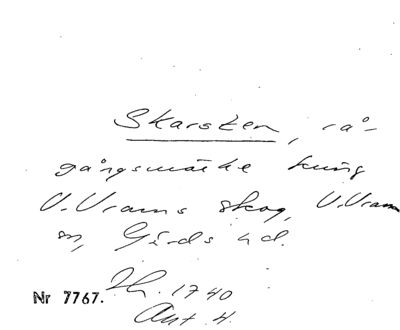 Skarsten, rå-
gångsmärke kring
V. Vrams skog, V. Vram
sn, Gärds hd.
Jb. 1740
Nr 7767.
Avt. 4.